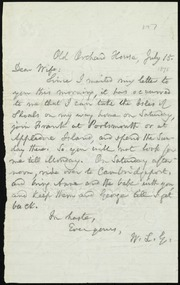 Old Orchard House, July 15.
Dear Wife,
Since I mailed my letter to
you this morning, it has occurred
to me that I can take the Isles of
Shoals on my way home on Saturday,
join Frank at Portsmouth or at
Appledore Island, and spend the Sun-
day there. So you will not look for
me till Monday. On Saturday after-
noon, ride over to Cambridgeport,
and bring Anna and the babe with you
and keep them and George till I get
back.
In haste,
Ever yours,
W. L. G.